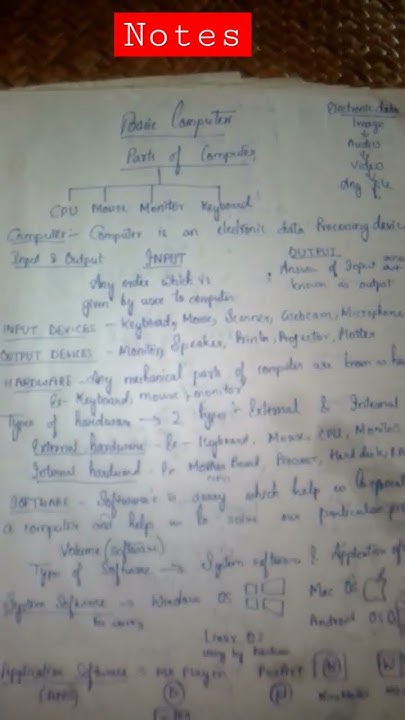 Notes
Basic Computer
Electronic data
Image
Audio
Video
Any file
Parts of Computer
CPU Mouse Monitor Keyboard
Computer :- Computer is an electronic data Processing device
Input & Output INPUT OUTPUT
Any order which is
given by user to computer
Answer of Input
known as output
INPUT DEVICES - Keyboard, Mouse, Scanner, Webcam, Microphone
OUTPUT DEVICES - Monitor, Speaker, Printer, Projector, Plotter
HARDWARE - Any mechanical parts of computer are known as
Ex- Keyboard, mouse, monitor
Types of hardware → 2 types :- External & Internal
External hardware - Ex- Keyboard, Mouse, CPU, Monitor
Internal hardward - Ex Mother Board, Hard disk,
SOFTWARE - Software is which help
a computer and help us to solve our particular
Volume (software)
Types of Software → System software & Application
System Software → Windows OS Mac OS
Android OS
Linux OS
using by hackers
Application Software =
(APPS)